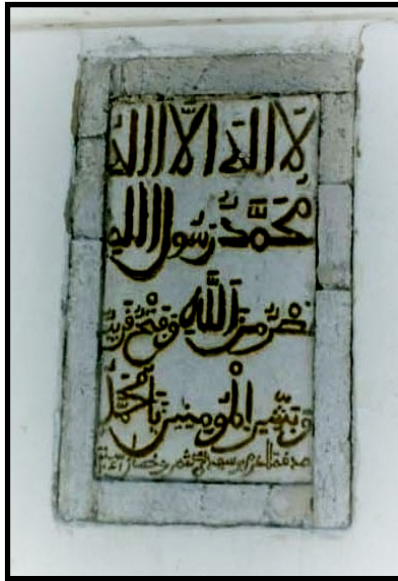 لا اله الا الله
مُحَمَّدٌ رَسُول اللهِ
نَصْرٌ مِنَ اللَّهِ وَفَتْحٌ قَرِيبٌ
وَبَشِّرِ الْمُومِنِينَ يَا مُحَمَّدُ